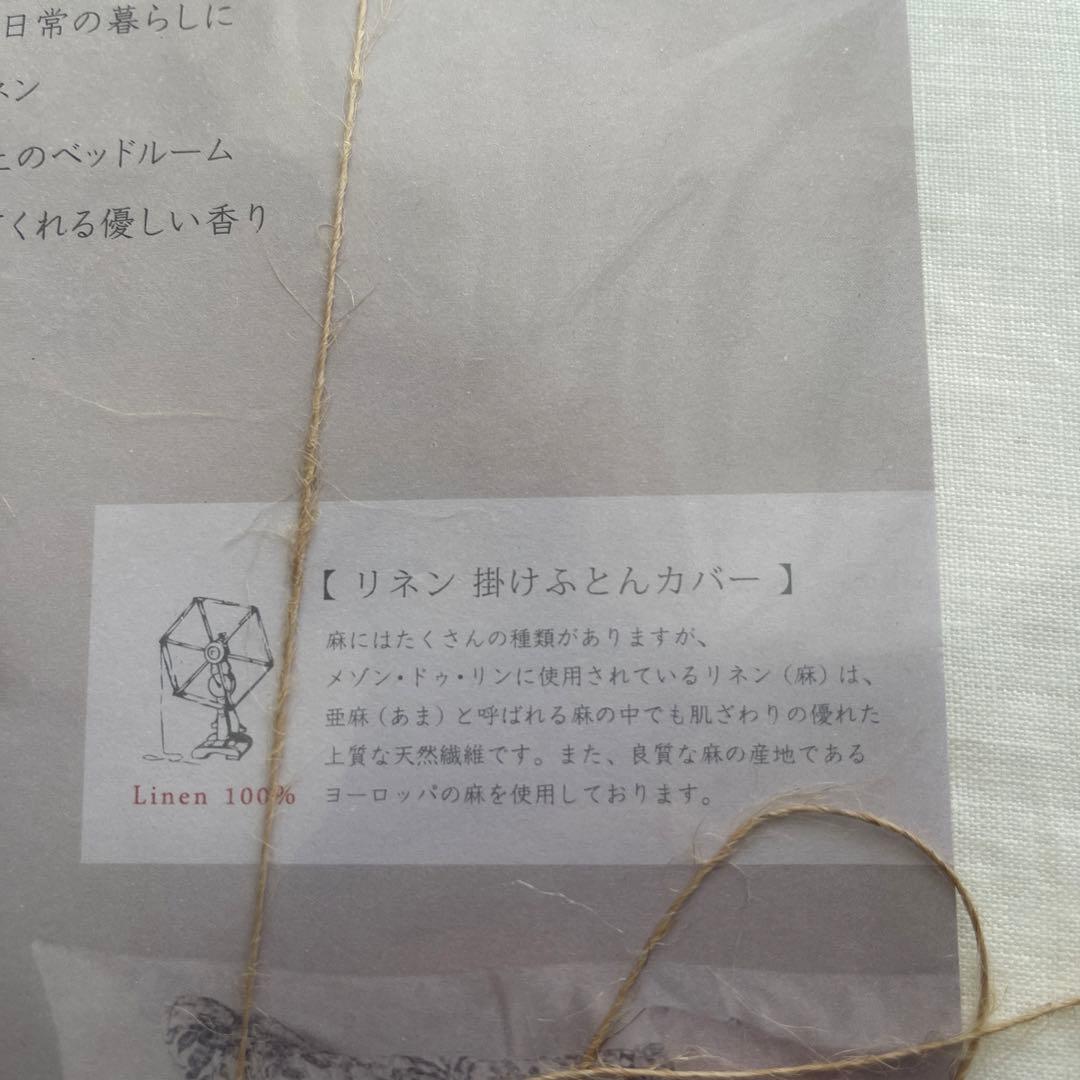 日常の暮らしに
ネン
上のベッドルーム
てくれる優しい香り
【 リネン 掛けふとんカバー 】
麻にはたくさんの種類がありますが、
メゾン・ドゥ・リンに使用されているリネン（麻）は、
亜麻（あま）と呼ばれる麻の中でも肌ざわりの優れた
上質な天然繊維です。また、良質な麻の産地である
ヨーロッパの麻を使用しております。
Linen 100%